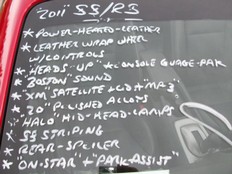 2011 SS/RS
* POWER-HEATED-LEATHER
* LEATHER WRAP WHEEL
W/CONTROLS
* "HEADS-UP" * CONSOLE GUAGE-PAK
* BOSTON SOUND
* "XM" SATELLITE +CD+ "MP3"
* "20" POLISHED ALLOYS
* "HALO" HID-HEAD-LAMPS
* SS STRIPING
* REAR-SPOILER
* "ON-STAR" * "PARK-ASSIST"